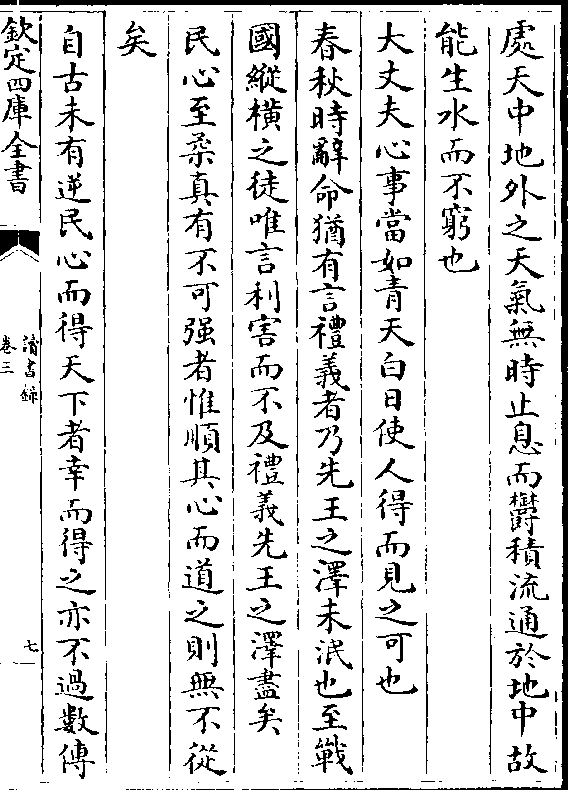 處天中地外之天氣無時止息而欝積流通於地中故
能生水而不窮也
大丈夫心事當如青天白日使人得而見之可也
春秋時辭命猶有言禮義者乃先王之澤未泯也至戰
國縱橫之徒唯言利害而不及禮義先王之澤盡矣
民心至柔真有不可强者惟順其心而道之則無不從
矣
自古未有逆民心而得天下者幸而得之亦不過數傳
欽定四庫全書
讀書錄
卷三
七